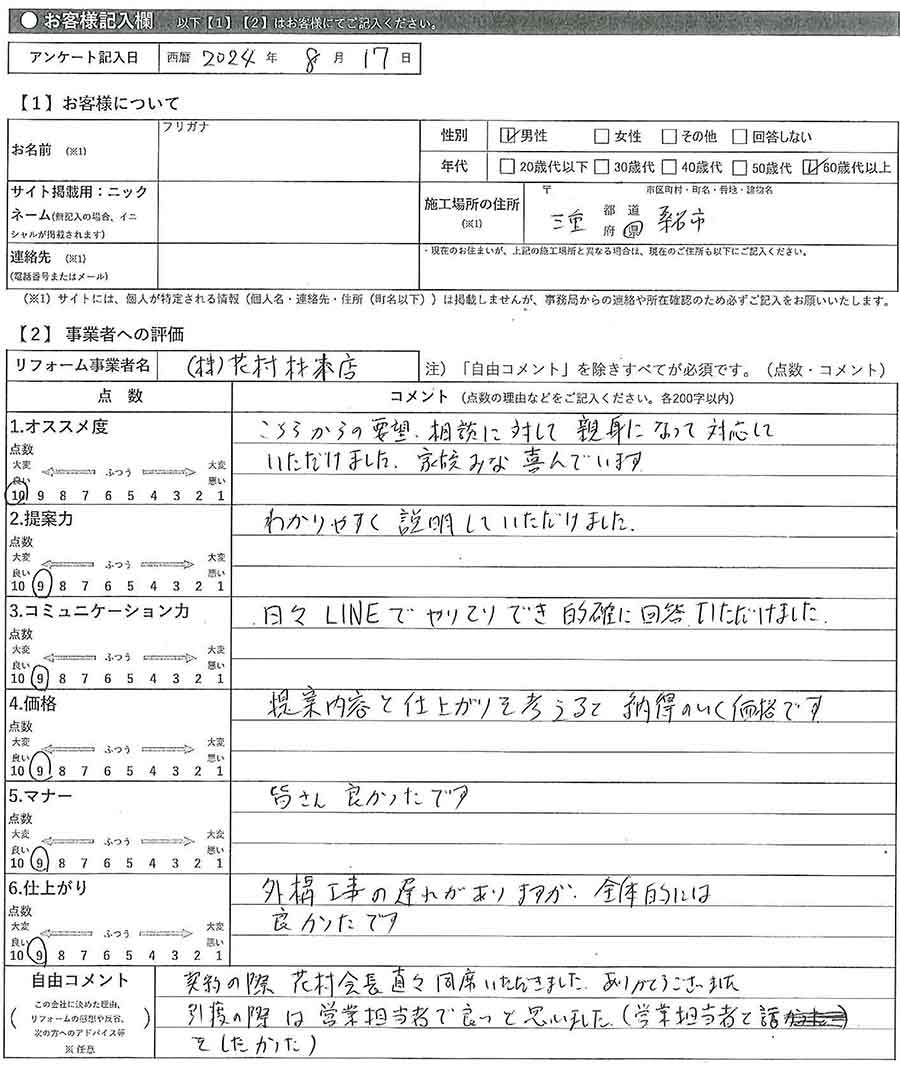 ● お客様記入欄 以下【1】【2】はお客様にてご記入ください。
アンケート記入日 西暦 2024 年 8 月 17 日
【1】お客様について
お名前 (※1) フリガナ
性別 ☑男性 □女性 □その他 □回答しない
年代 □20歳代以下 □30歳代 □40歳代 □50歳代 ☑60歳代以上
サイト掲載用：ニックネーム(無記入の場合、イニシャルが掲載されます)
施工場所の住所 (※1) 〒 市区町村・町名・番地・建物名
三重 都道府県 桑名市
・現在のお住まいが、上記の施工場所と異なる場合は、現在のご住所も以下にご記入ください。
連絡先 (※1)
(電話番号またはメール)
(※1) サイトには、個人が特定される情報（個人名・連絡先・住所（町名以下））は掲載しませんが、事務局からの連絡や所在確認のため必ずご記入をお願いいたします。
【2】事業者への評価
リフォーム事業者名 (株)花村材木店 注）「自由コメント」を除きすべてが必須です。（点数・コメント）
点 数 コメント (点数の理由などをご記入ください。各200字以内)
1.オススメ度
点数
大変良い ふつう 大変悪い
10 9 8 7 6 5 4 3 2 1
こちらからの要望、相談に対して 親身になって対応して
いただけました。家族みな喜んでいます
2.提案力
点数
大変良い ふつう 大変悪い
10 9 8 7 6 5 4 3 2 1
わかりやすく説明していただけました。
3.コミュニケーション力
点数
大変良い ふつう 大変悪い
10 9 8 7 6 5 4 3 2 1
日々LINEでやりとりでき 的確に回答いただけました。
4.価格
点数
大変良い ふつう 大変悪い
10 9 8 7 6 5 4 3 2 1
提案内容と仕上がりを考えると 納得のいく価格です
5.マナー
点数
大変良い ふつう 大変悪い
10 9 8 7 6 5 4 3 2 1
皆さん良かったです
6.仕上がり
点数
大変良い ふつう 大変悪い
10 9 8 7 6 5 4 3 2 1
外構工事の遅れがありますが、全体的には
良かったです
自由コメント
(この会社に決めた理由、リフォームの感想や反省、次の方へのアドバイス等 ※任意)
契約の際 花村会長直々同席いただきました。ありがとうございました
引渡の際は営業担当者で良っと思いました。(営業担当者と話
をしたかった)